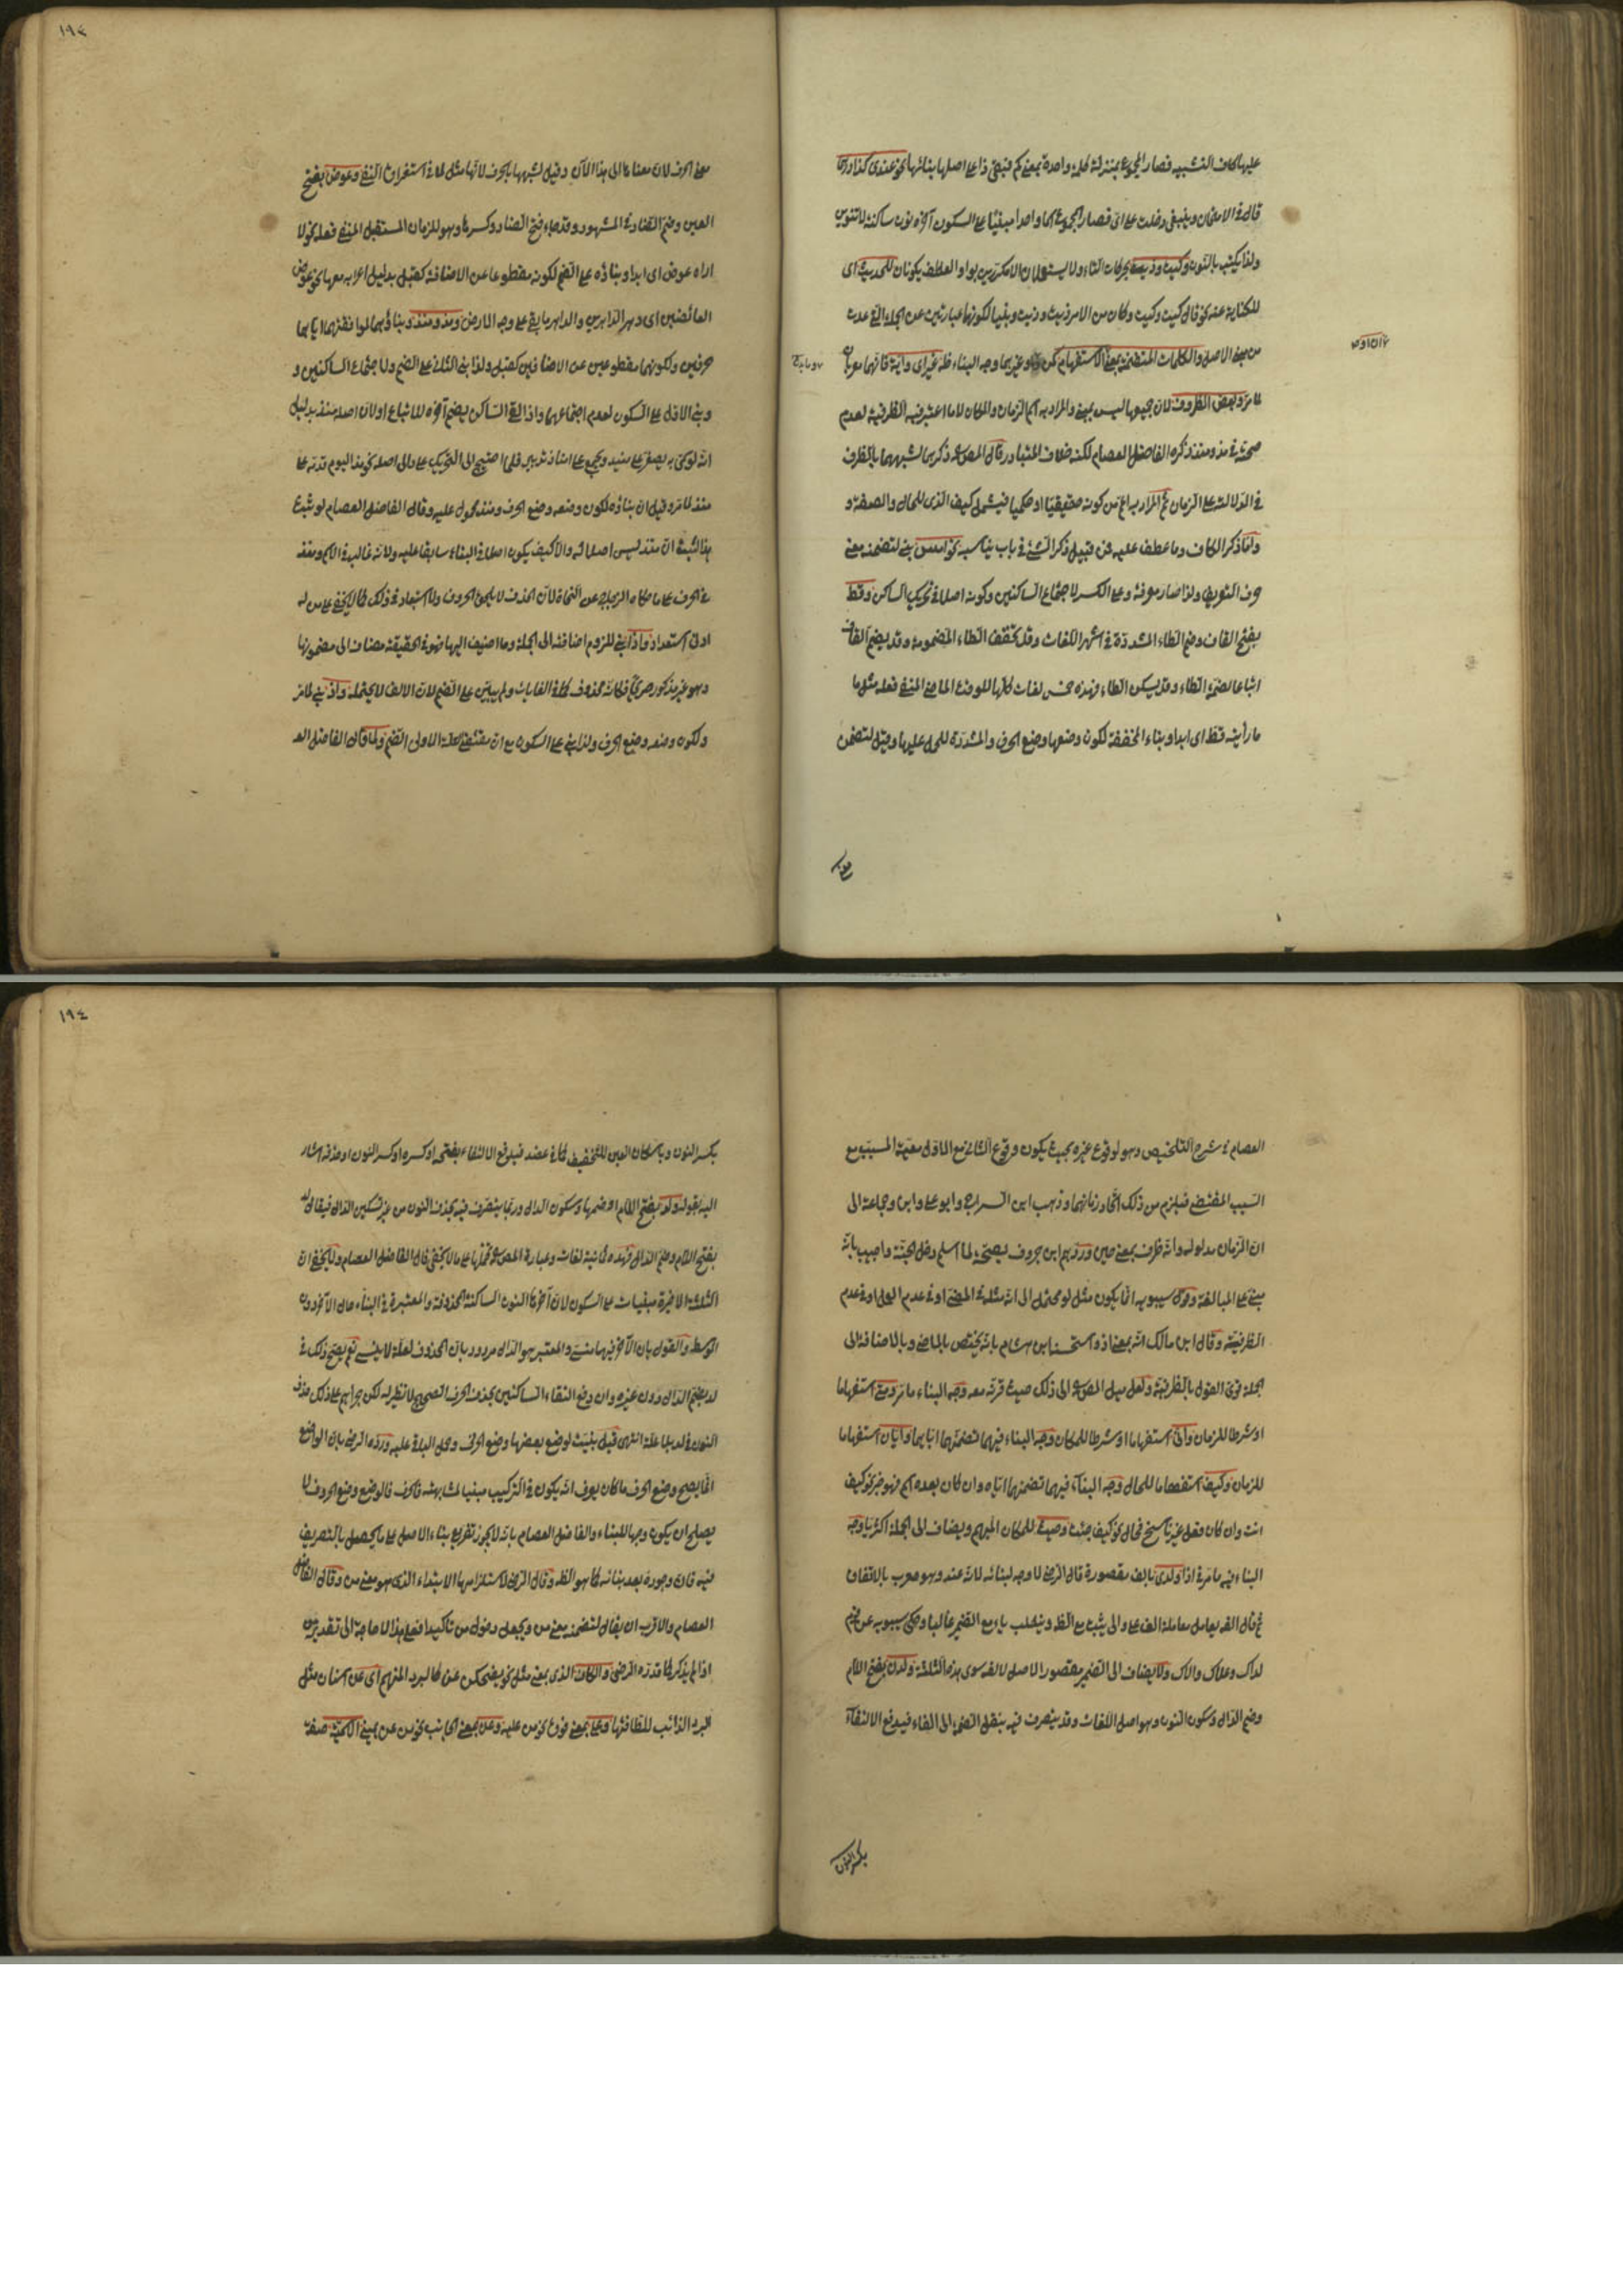 عليها كاف التشبيه فصار المجموع بمنزلة كلمة واحدة بمعنى كم فبقى ذا على اصل بنائها نحو عندى كذا درهما
قال في الامتحان وينبغى دخلت على اى فصار المجموع اسما واحدا مبنيا على السكون آخره نون ساكنة لا تنوين
ولذا يكتب بالنون وكيت وذيت بحركات التاء ولا يستعملان الا مكررين بواو العطف يكونان للحديث اى
للكناية عنه نحو قال كيت وكيت وكان من الامر ذيت وذيت وبنيا لكونهما عبارتين عن الجملة التى عدت
من مبنى الاصل والكلمات المتضمنة بمعنى الاستفهام كمن وما وغيرهما وجه البناء ظ غير اى واية فانهما معربان
لما مر وبعض الظروف لان جميعها ليس بمبنى والمراد به اسم الزمان والمكان لا ما اعتبر فيه الظرفية لعدم
صحته في مذ ومنذ ذكره الفاضل العصام لكنه خلاف المتبادر وقال المص ذكرهما لشبههما بالظرف
في الدلالة على الزمان ثم المراد به اعم من كونه حقيقيا او حكميا فيشمل كيف الذى للحال والصفة و
واما ذكر الكاف وما عطف عليه فمن قبيل ذكر الشئ في باب يناسبه نحو امس بنى لتضمنه معنى
حرف التعريف ولذا صار معرفة وعلى الكسر لاجتماع الساكنين وكونه اصلا في تحريك الساكن وقط
بفتح القاف وضم الطاء المشددة في اشهر اللغات وقد تخفف الطاء المضمومة وقد يضم القاف
اتباعا لضمة الطاء وقد يسكن الطاء فهذه خمس لغات كلها للوقت الماضى المنفى فعله مثل ما
ما رأيته قط اى ابدا وبناء المخففة لكون وضعها وضع الحرف والمشددة للحمل عليها وقيل لتضمن
معنى الحرف لان معناه ما الى هذا الآن وقيل لشبهها بالحرف لانها مثل لا في استغراق النفى وعوض بفتح
العين وضم الضاد في المشهور وقد جاء فتح الضاد وكسرها وهو للزمان المستقبل المنفى فعله نحو لا
اراه عوض اى ابدا وبناؤه على الضم لكونه مقطوعا عن الاضافة كقبل بدليل اعرابه معها نحو عوض
العائضين اى دهر الداهرين والداهر ما يبقى على وجه الارض ومذ ومنذ وبناؤهما لموافقتهما اياهما
حرفين ولكونهما مقطوعين عن الاضافة كقبل ولذا بنى الثانى على الضم ولاجتماع الساكنين و
وبنى الاول على السكون لعدم اجتماعهما واذا لقى الساكن يضم آخره للاتباع او لان اصله منذ بدليل
انه لو سمى به يصغر على منيذ ويجمع على امناذ
منذ لما مر وقيل ان بناؤه لكون وضعه وضع الحرف ومنذ محمول عليه وقال الفاضل العصام لو ثبت
ادنى استعداد واذا بنى للزوم اضافته الى الجملة وما اضيف اليها فهو في الحقيقة مضاف الى مضمونها
وهو غير مذكور صريحا فكأنه محذوف كما في الغايات ولم يبن على الضم لان الالف لا يحتمله واذ بنى لما مر
ولكون وضعه وضع الحرف ولذا بنى على السكون مع ان مقتضى العلة الاولى الضم ولما وقال الفاضل العصام
العصام في شرح التلخيص وهو لوقوع غيره بحيث يكون وقوع الثانى مع الاول معية المسبب مع
السبب المقتضى فيلزم من ذلك اتحاد زمانهما وذهب ابن السراج وابو على وابن وجماعة الى
ان الزمان مدلوله وانه ظرف بمعنى حين ورد بهم ابن خروف بصحة لما اسلم دخل الجنة واجيب بانه
مبنى على المبالغة وقول سيبويه انما يكون مثل لو محتمل الى انه مثله في المضى او في عدم العمل او في عدم
الظرفية وقال ابن مالك انه بمعنى اذ واستحسنه ابن هشام بانه يختص بالماضى وبالاضافة الى
الجملة فقوى القول بالظرفية ولعل ميل المص الى ذلك حيث قرنه معه وجه البناء ما مر ومتى استفهاما
او شرطا للزمان وانى استفهاما او شرطا للمكان وجه البناء فيهما تضمنهما اياهما وايان استفهاما
للزمان وكيف استفهاما للحال وجه البناء فيهما تضمنهما اياه وان كان بعده اسم فهو خبر نحو كيف
انت وان كان فعل غير ناسخ فحال نحو كيف جئت وحيث للمكان المبهم ويضاف الى الجملة اكثريا وجه
البناء فيه ما مر في اذا ولدى بالف مقصورة قال الرضى لا وجه لبنائه لانه عند وهو معرب بالاتفاق
ثم قال الفه يعامل معاملة الف على والى يثبت مع الظ وينقلب ياء مع الضمير غالبا وحكى سيبويه عن قوم
لداك وعلاك والاك ولا يضاف الى الضمير مقصور الاصل لالفه سوى هذه الثلاثة ولدن بفتح اللام
وضم الدال وسكون النون وهو اصل اللغات وقد يتصرف فيه بنقل الضمة الى الفاء فيدفع الالتقاء
بكسر النون
بكسر النون وباسكان العين للتخفيف كما في عضد فيدفع الالتقاء بفتحه او كسره او كسر النون او حذفه اشار
اليه بقوله ولد بفتح اللام او ضمها وسكون الدال وربما يتصرف فيه بحذف النون من غير تسكين الدال فيقال لد
بفتح اللام وضم الدال فهذه ثمانية لغات وعبارة المص تحتملها على ما لا يخفى قال الفاضل العصام ولا يخفى ان
الثلثة الاخيرة مبنيات على السكون لان آخرها النون الساكنة المحذوفة والمعتبرة في البناء حال الآخر دون
الوسط والقول بان الآخر فيها منسى والمعتبر هو الدال مردود بان المحذوف لعلة لا ينسى نعم يصح ذلك في
لد بضم الدال دون غيره وان دفع التقاء الساكنين بحذف الحرف الصحيح لا نظير له لكن جرأهم على ذلك حذف
النون في لد بلا علة انتهى قيل بنيت لوضع بعضها وضع الحرف وحمل البقية عليه ورده الرضى بان الواضع
انما يصح وضع الحرف ما كان يعرف انه يكون في التركيب مبنيا لمشابهته فالحرف فالوضع وضع الحروف لا
يصلح ان يكون وجها للبناء والفاضل العصام بانه لا يجوز تفريع بناء الاصل على ما يحصل بالتصريف
فيه فان وجوده بعد بنائه كما هو الظ وقال الرضى لاستلزامها الابتداء الذى هو معنى من وقال الفاضل
العصام والاقرب ان يقال لتضمنه معنى من ويجعل دخول من تأكيدا فعلى هذا لا حاجة الى تقدير من
اذا لم يذكر كما قدره الرضى والكاف الذى بمعنى مثل نحو يضحكن عن كالبرد المنهم اى عن اسنان مثل
البرد الذائب للطافتها وعلى بمعنى فوق نحو من عليه وعن بمعنى الجانب نحو من عن يمينى الكمية صفة
١٩٣
١٩٤